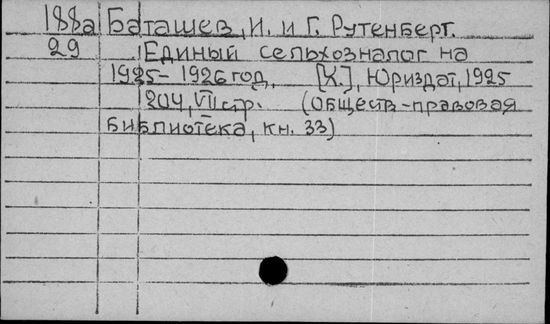 188а Баташев, И. и Г. Рутенберг.
29 Единый сельхозналог на
1925-1926 год. [Х], Юриздат, 1925
204, VII стр. (Обществ-правовая
библиотека, кн. 33)